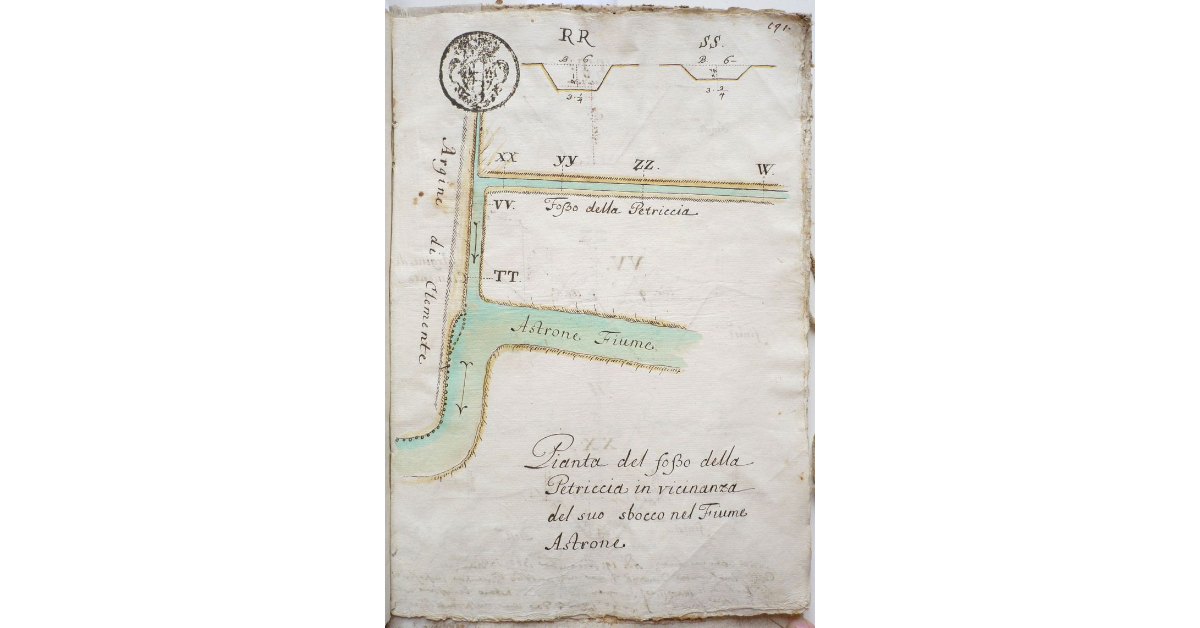 191.
RR
SS.
B. 6
B. 6
3 1/4
3 3/4
XX
yy
ZZ.
W.
VV.
Foßo della Petriccia
TT.
Argine di Clemente
Astrone Fiume
Pianta del foßo della
Petriccia in vicinanza
del suo sbocco nel Fiume
Astrone